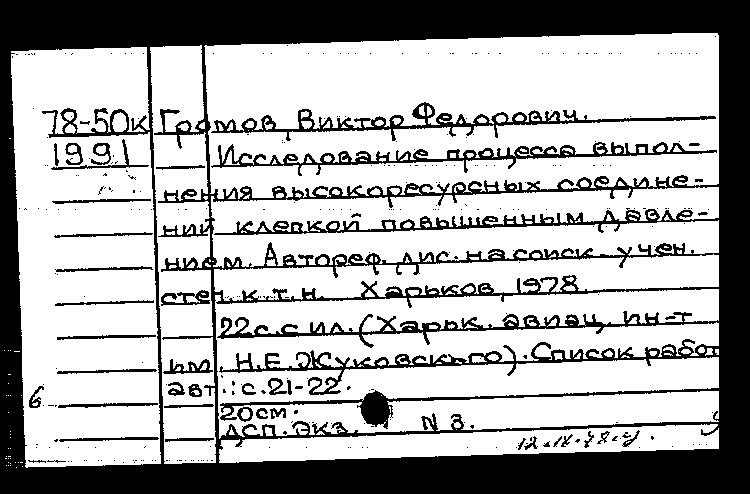 78-50к Громов, Виктор Федорович.
1991 Исследование процесса выпол-
нения высокоресурсных соедине-
ний клепкой повышенным давле-
нием. Автореф. дис. на соиск. учен.
степ. к.т.н. Харьков, 1978.
22с. с ил. (Харьк. авиац. ин-т
им. Н.Е. Жуковского). Список работ
авт.: с. 21-22.
6
20см.
ДСП. Экз. N 3.